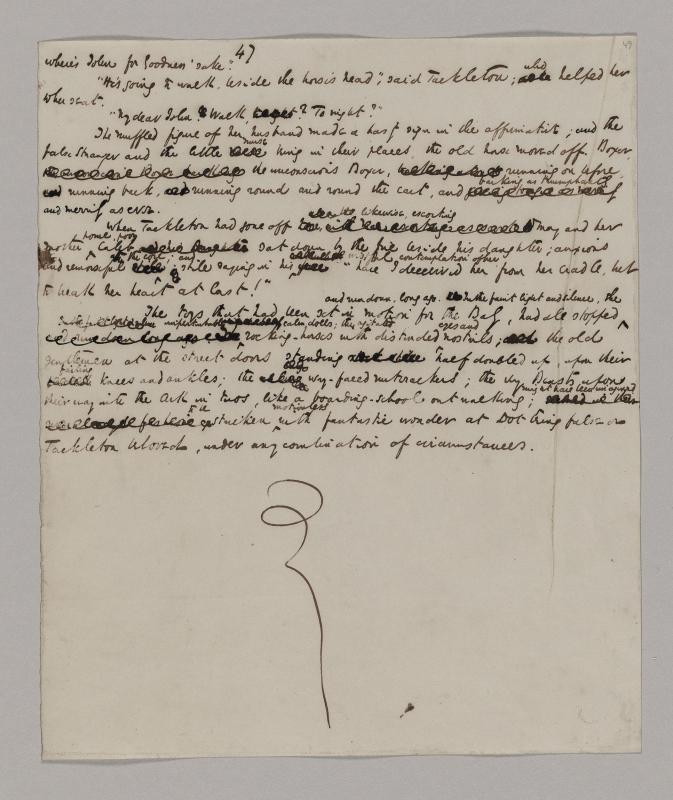 47
49
where's John for Goodness' sake?"
"He's going to walk, beside the horse's head"; said Tackleton; who helped her
to her seat.
"My dear John! Walk, ? To night?"
The muffled figure of her husband made a hasty sign in the affirmative; and the
false Stranger and the little nurse being in their places, the old horse moved off. Boxer,
the unconscious Boxer, running on before,
running back, running round and round the cart, and barking as triumphantly
and merrily as ever.
When Tackleton had gone off likewise, escorting May and her
mother home, poor Caleb sat down by the fire beside his daughter; anxious
and remorseful at the core; and still saying in his wistful contemplation of her "have I deceived her from her cradle, but
to break her heart at last!"
The toys that had been set in motion for the Baby, had all stopped
and run down, long ago. In the faint light and silence, the
imperturbably calm dolls; the agitated rocking-horses with distended eyes and nostrils; the old
gentlemen at the street doors standing half doubled up upon their
failing knees and ankles; the wry-faced nutcrackers; the very Beasts upon
their way into the Ark in twos, like a boarding-school out walking; might have been imagined
to be stricken motionless with fantastic wonder at Dot being false or
Tackleton beloved, under any combination of circumstances.